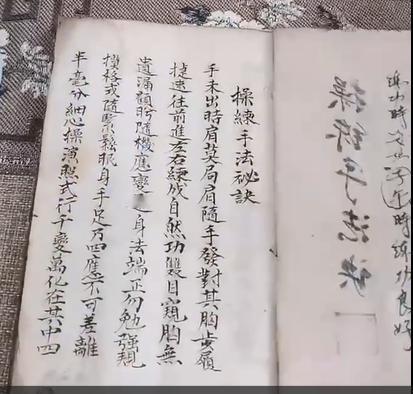 時練功良好
操練手法
操練手法祕訣
手未出時肩莫局肩隨手發對其胸步履
捷速往前進左右練成自然功雙目窺胸無
遺漏顧盼隨機應變身法端正勿勉強規
模格或隨緊鬆眼身手足乃四應不可差離
半毫分細心操演照式行千變萬化在其中四